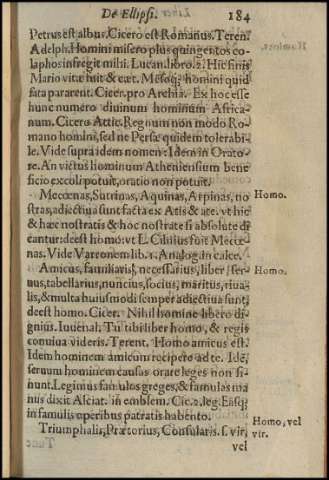 De Ellipsi. 184
Petrus est albus. Cicero est Romanus. Teren.
Adelph. Homini misero plus quingentos co-
laphos infregit mihi. Lucan. libro. 2. Hic finis
Mario vitæ fuit & cæt. Mēsoq; homini quid
fata pararent. Cicer. pro Archia. Ex hoc esse
hunc numero diuinum hominum Africa-
num. Cicero Attic. Regnum non modo Ro-
mano homini, sed ne Persæ quidem tolerabi-
le. Vide supra idem nomen: Idem in Orato-
re. An victus hominum Atheniensium bene
ficio excoli potuit, oratio non potuit.
Mecœnas, Sutrinas, Aquinas, Arpinas, no Homo.
stras, adiectiua sunt facta ex Atis & ate. vt hic
& hæc nostratis & hoc nostrate si absolute di
cantur: deest homo: vt L. Cilnius fuit Mecœ
nas. Vide Varronem lib. 1. Analog. in calce.
Amicus, familiaris, necessarius, liber, ser- Homo.
uus, tabellarius, nuncius, socius, maritus, riua-
lis, & multa huiusmodi semper adiectiua sunt,
deest homo. Cicer. Nihil homine libero di-
gnius. Iuuenal. Tu tibi liber homo, & regis
conuiua videris. Terent. Homo amicus est.
Idem hominem amicum recipere ad te. Idē,
seruum hominem causas orare leges non si-
nunt. Leginius famulos greges, & famulas ma
nus dixit Alciat. in emblem. Cic. 2. leg. Easq;
in famulis operibus patratis habento. Homo, vel
Triumphalis, Prætorius, Consularis. s. vir, vir.
vel